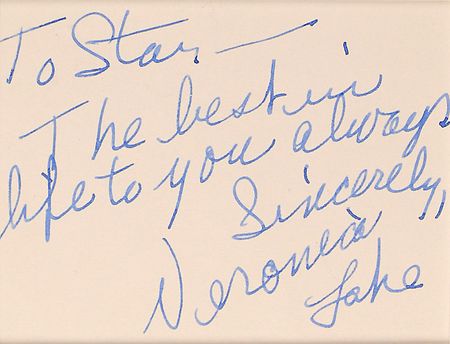 To Stan —
The best in
life to you always
Sincerely,
Veronica
Lake